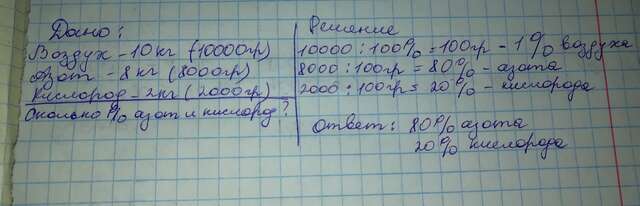 Дано:
Воздух - 10 кг (10000гр)
азот - 8 кг (8000гр)
Кислород - 2кг (2000гр)
Сколько % азот и кислород?
Решение
10000 : 100% = 100гр - 1% воздуха
8000 : 100гр = 80% - азота
2000 : 100гр = 20% - кислорода
Ответ: 80% азота
20% кислорода